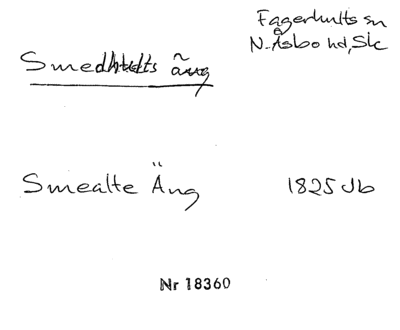 Fagerhults sn
N. Åsbo hd, Sk
Smedhults äng
Smealte Äng 1825 Jb
Nr 18360